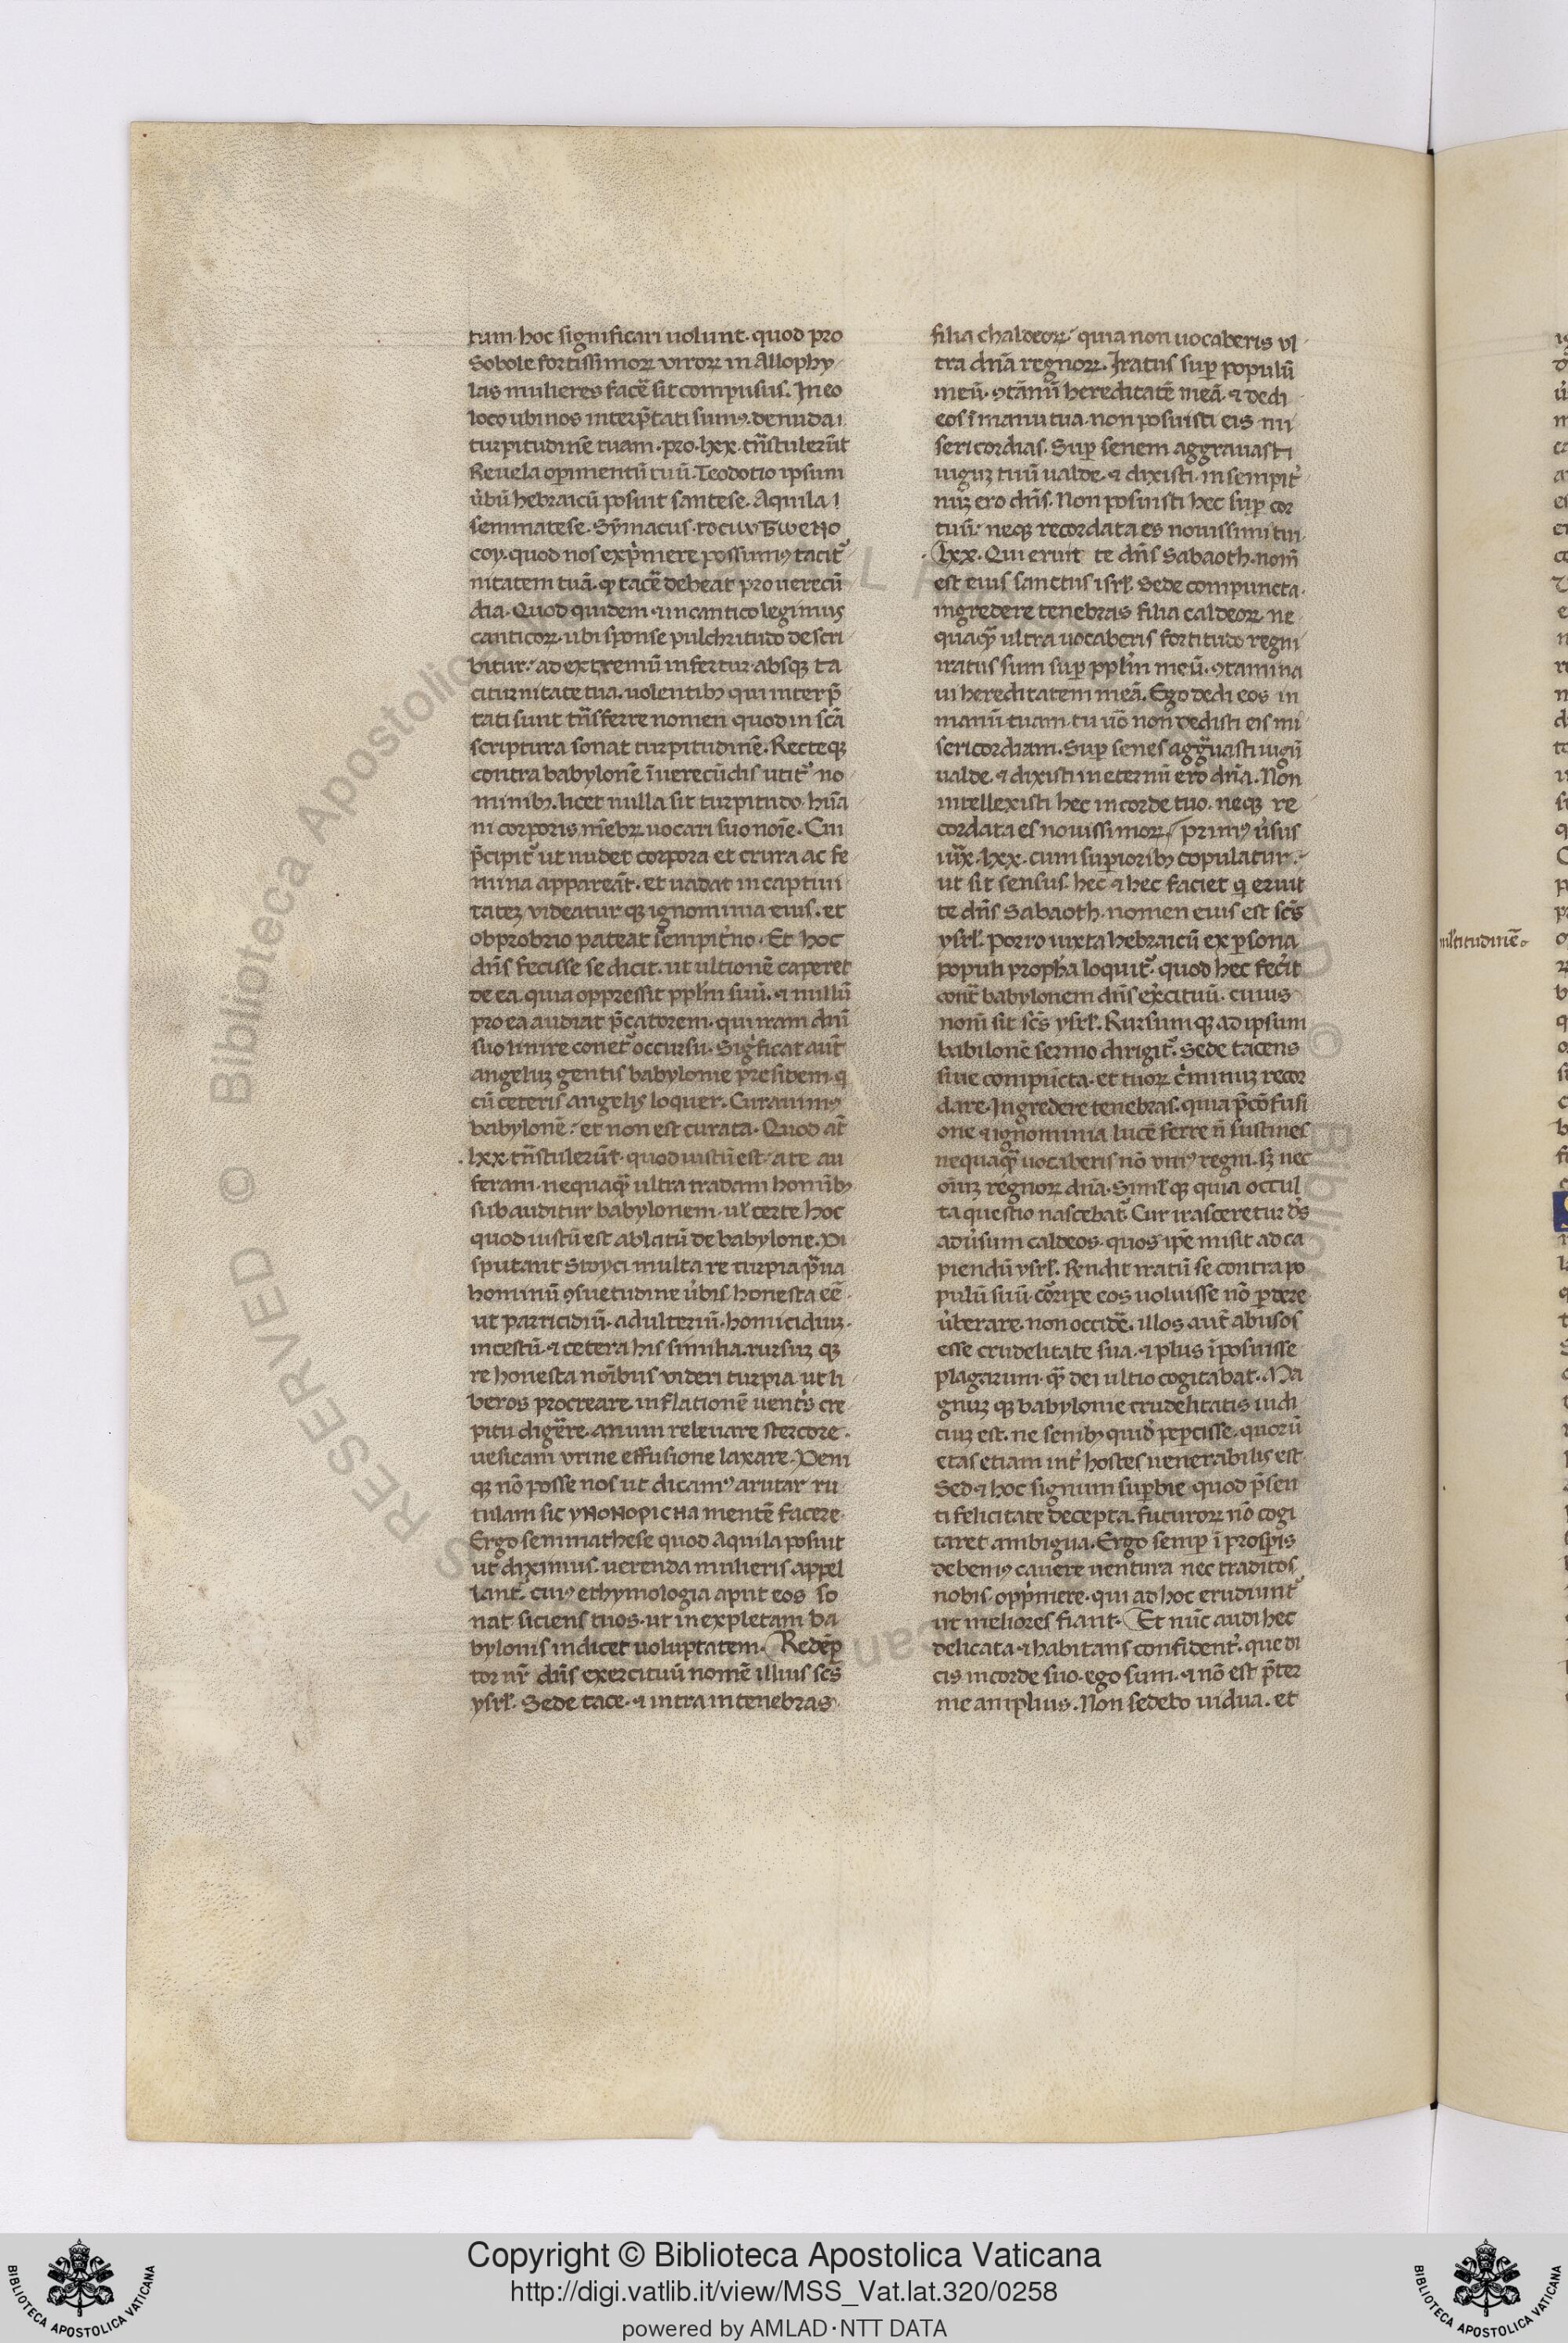 tum·hoc significari uolunt·quod pro
Sobole fortissimoꝝ viroꝝ in Allophy
las mulieres facē sit compulsus. In eo
loco ubi nos interp̄tati sumꝰ. denuda i
turpitudinē tuam·pro·lxx·tn̄stulerūt
Reuela opimentū tuū·Teodotio ipsum
ůbū hebraicū posuit santese. Aquila i
semmatese. Sȳmacus·
coy·quod nos exp̓mere possumꝰ tacit᷑
nitatem tuā·qͥ tacē debeat pro uerecū
dia·Quod quidem·⁊ in cantico legimus
canticoꝝ·ubi sponse pulchritudo descri
bitur: ad extremū infertur·absqꝫ ta
citurnitate tua. uolentibꝫ qui interp̄
tati sunt tn̄sferre nomen quod in scā
scriptura sonat turpitudinē. Recteqꝫ
contra babylonē īuerecūdis utit᷑ no
minibꝫ. licet nulla sit turpitudo hūa
ni corporis mēbꝝ uocari suo noīe. Cui
p̄cipit᷑ ut nudet corpora et crura ac fe
mina appareāt. et uadat in captiui
tateꝫ videatur qꝫ ignominia eius. et
obprobrio pateat sempit̓no. Et hoc
dn̄s fecisse se dicit. ut ultionē caperet
de ea. quia oppressit pplm̄ suū. ⁊ nullū
pro ea audiat p̄catorem. qui iram dn̄i
suo linire conet᷑ occursu. Sigͥficat aut̄
angeluꝫ gentis babylonie presidem·q
cū ceteris angelis loquer. Curauimꝰ
babylonē: et non est curata. Quod at̄
lxx·tn̄stulerūt·quod iustū est: a te au
feram·nequaqͣ ultra tradam homībꝫ
subauditur babylonem·ul̓ certe hoc
quod iustū est ablatū de babylone. Di
sputant Stoyci multa re turpia p̄ua
hominū ꝯsuetudine ůbis honesta eē·
ut parricidiū·adulteriū·homicidiuꝫ·
incestū·⁊ cetera his similia. rursuꝫ qꝫ
re honesta noībus videri turpia ut li
beros procreare inflationē uent̓s cre
pitu digerͤe. anum releuare stercore·
uesicam vrine effusione laxare. Deni
qꝫ nō posse nos ut dicamꝰ a rutar ru
tulam sic mentē facere·
Ergo semmathese quod Aquila posuit
ut diximus. uerenda mulieris appel
lant᷑. cuiꝰ ethymologia aput eos so
nat siciens tuos·ut inexpletam ba
bylonis indicet uoluptatem. Redēp
tor nr̄ dn̄s exercituū nomē illius scs̄
ysrl̓. Sede tace·⁊ intra in tenebras·
filia chaldeoꝝ: quia non uocaberis vl
tra dn̄a regnoꝝ. Iratus sup̱ populū
meū·ꝯtāīnū hereditatē meā·⁊ dedi
eos ī manu tua·non posuisti eis mi
sericordias. Sup̱ senem aggrauasti
iuguꝫ tuū ualde·⁊ dixisti·in sempit̓
nuꝫ ero dn̄s. Non posuisti hec sup̱ cor
tuū: neqꝫ recordata es nouissimi tui·
lxx. Qui eruit te dn̄s Sabaoth·nom̄
est eius sanctus isrl̓. Sede compuncta·
ingredere tenebras filia caldeoꝝ·ne
quaqͣ ultra uocaberis fortitudo regni
iratus sum sup̱ pplm̄ meū·ꝯtamina
ui hereditatem meā. Ego dedi eos in
manū tuam·tu uō non dedisti eis mi
sericordiam. Sup̱ senes aggͣuasti iugū
ualde·⁊ dixisti in eternū ero dn̄a. Non
intellexisti hec in corde tuo·neqꝫ re
cordata es nouissimoꝝ. primꝰ ůsus
iux̄. lxx. cum sup̱ioribꝫ copulatur:
ut sit sensus. hec ⁊ hec faciet q eruit
te dn̄s Sabaoth·nomen eius est scs̄
ysrl̓. Porro iuxta hebraicū ex p̱sona
populi proph̄a loquit᷑·quod hec fec̓it
cont̄ babylonem dn̄s ex̓cituū·cuius
nom̄ sit scs̄ ysrl̓. Rursum qꝫ ad ipsum
babilonē sermo dirigit᷑. Sede tacens
siue compūcta·et tuoꝝ c̓minuꝫ recor
dare. Ingredere tenebras. quia p̄ cōfusi
one ⁊ ignominia lucē ferre n̄ sustines
nequaqͣ uocaberis nō vniꝰ regni. sꝫ nec
oīuꝫ regnoꝝ dn̄a. Siml̓ qꝫ quia occul
ta questio nascebat᷑. Cur irasceretur ds̄
adůsum caldeos·quos ip̄e misit ad ca
piendū ysrl̓. Rendit iratū se contra po
pulū suū·corͥipe eos uoluisse nō p̱dere
ůberare·non occidē. illos aut̄ abusos
esse crudelitate sua·⁊ plus īposuisse
plagarum·qͣ dei ultio cogitabat. Ma
gnuꝫ qꝫ babylonie crudelitatis iudi
ciuꝫ est. ne senibꝫ quid̓ pep̱cisse·quorū
etas etiam int̓ hostes uenerabilis est·
Sed ⁊ hoc signum sup̱bie quod p̄sen
ti felicitate decepta. futuroꝝ nō cogi
taret ambigua. Ergo semp̱ ī prosp̱is
debemꝰ cauere uentura nec traditos
nobis·opp̓mere·qui ad hoc erudiunt᷑
ut meliores fiant. Et nūc audi hec
delicata·⁊ habitans confident̓. que di
cis in corde suo·ego sum·⁊ nō est p̄ter
me amplius. Non sedebo uidua. et
Copyright © Biblioteca Apostolica Vaticana
http://digi.vatlib.it/view/MSS_Vat.lat.320/0258
powered by AMLAD·NTT DATA
BIBLIOTECA APOSTOLICA VATICANA
BIBLIOTECA APOSTOLICA VATICANA